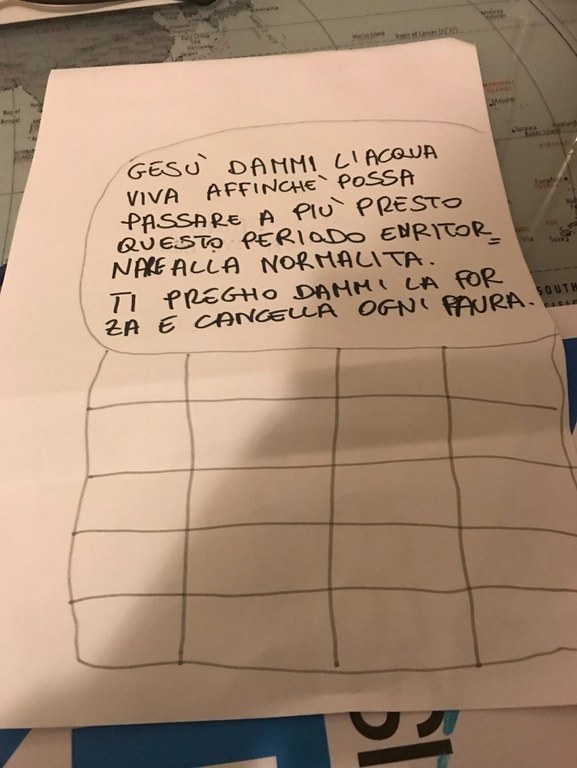 GESÙ DAMMI L'ACQUA
VIVA AFFINCHÈ POSSA
PASSARE A PIÙ PRESTO
QUESTO PERIODO E RITOR=
NARE ALLA NORMALITA.
TI PREGHO DAMMI LA FOR
ZA E CANCELLA OGNI PAURA.
SOUTH
SI